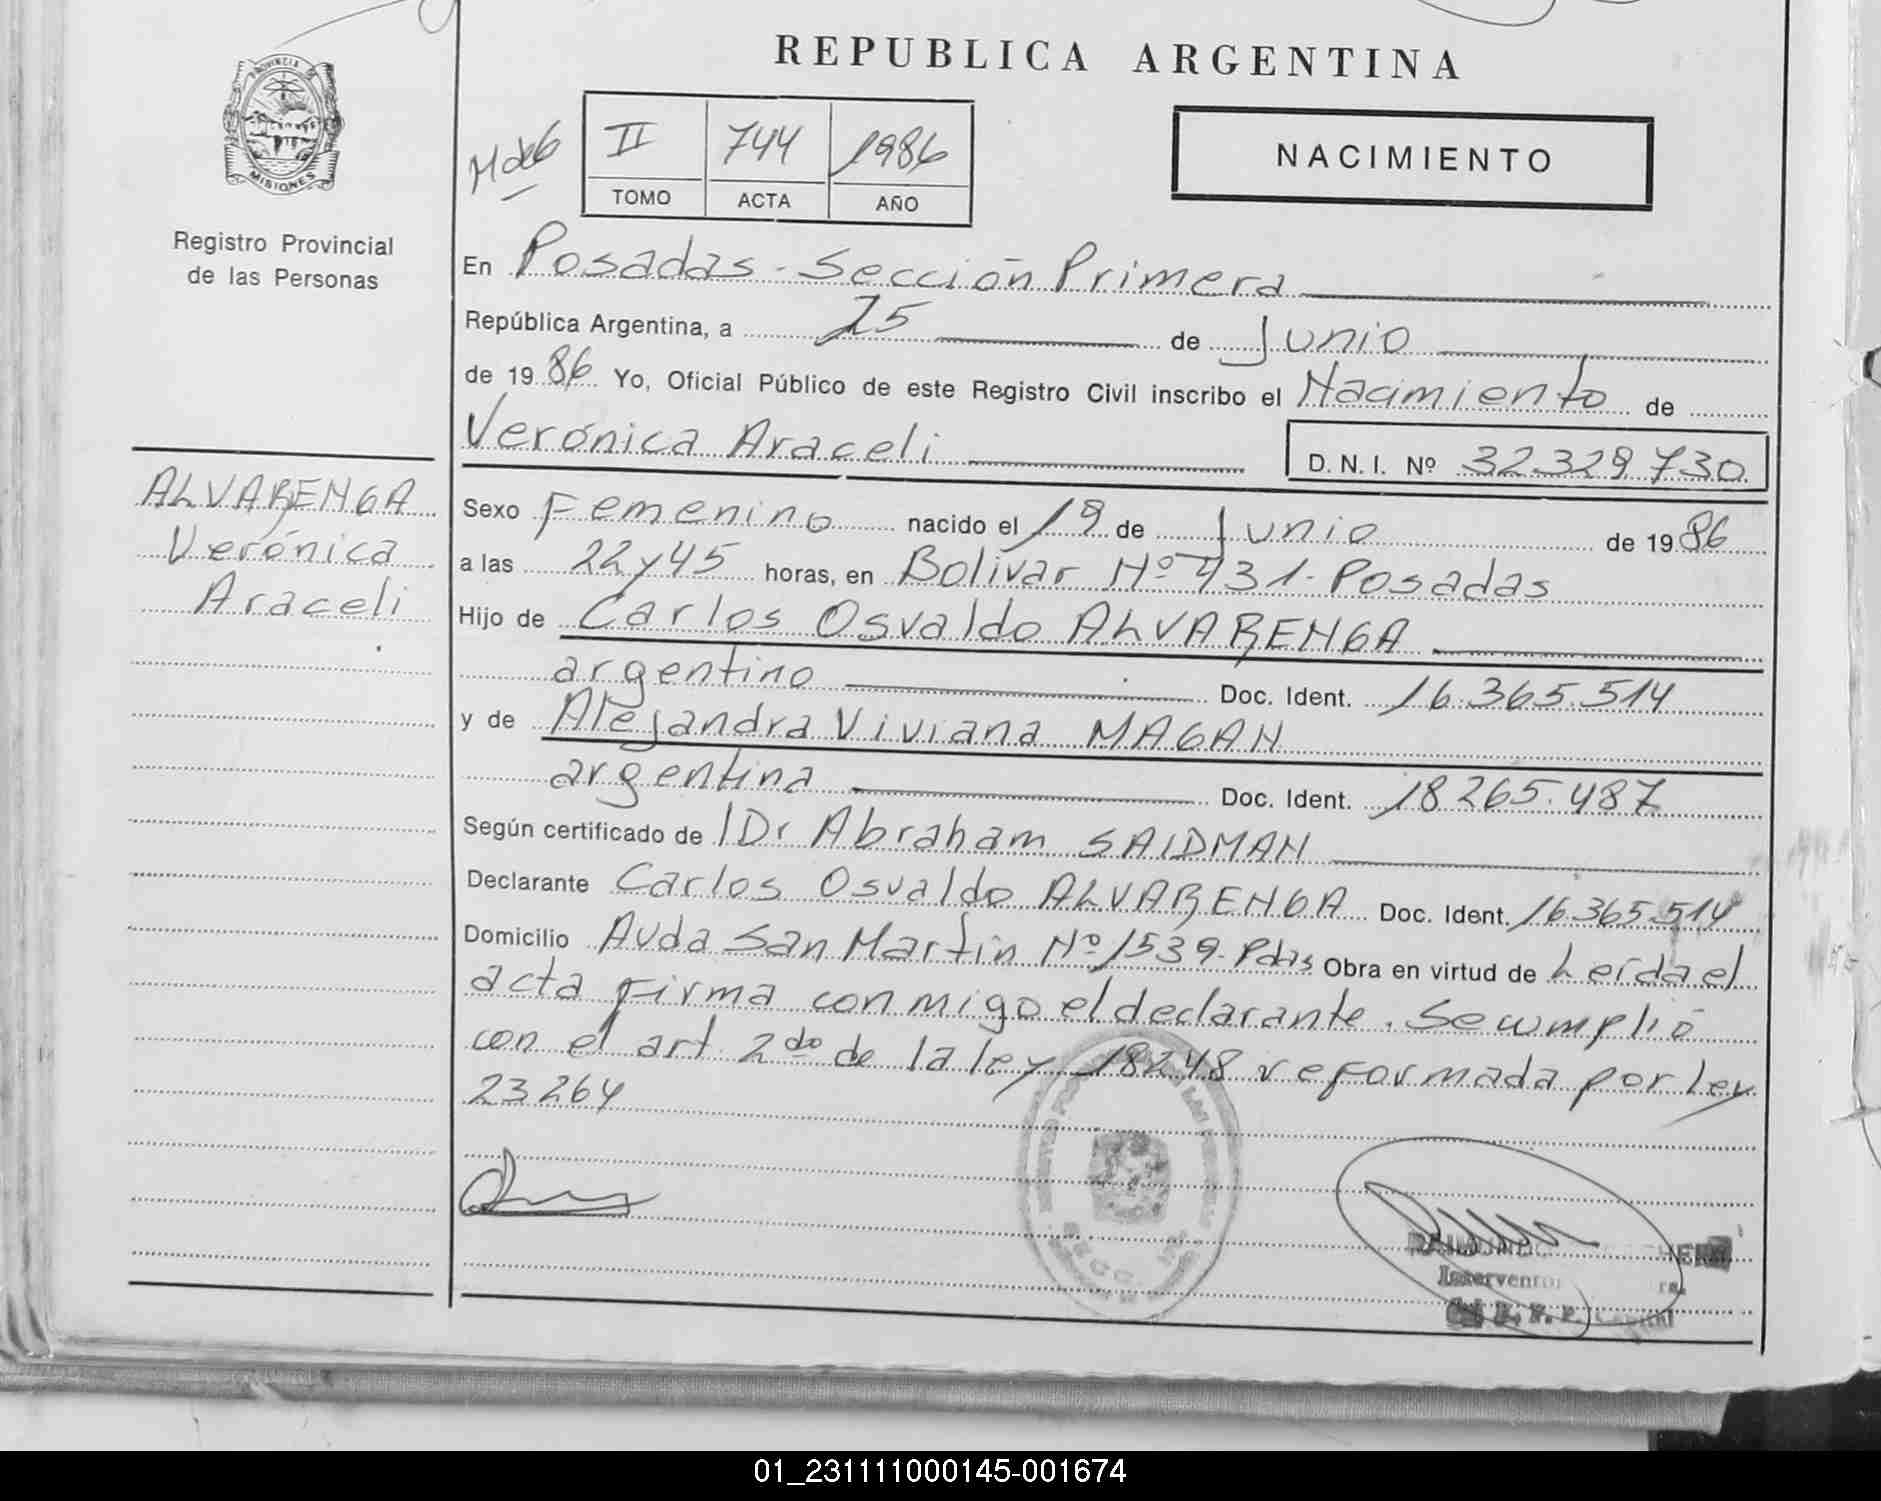 REPUBLICA ARGENTINA
PROVINCIA DE
MISIONES
Registro Provincial
de las Personas
II 744 1986
TOMO ACTA AÑO
NACIMIENTO
En Posadas - Sección Primera
República Argentina, a 25 de Junio
de 1986 Yo, Oficial Público de este Registro Civil inscribo el Nacimiento de
Verónica Araceli D. N. I. Nº 32.329.730
ALVARENGA
Verónica
Araceli
Sexo Femenino nacido el 19 de Junio de 1986
a las 22 y 45 horas, en Bolivar Nº 431 - Posadas
Hijo de Carlos Osvaldo ALVARENGA
argentino Doc. Ident. 16.365.514
y de Alejandra Viviana MAGAN
argentina Doc. Ident. 18265.487
Según certificado de Dr Abraham SAIDMAN
Declarante Carlos Osvaldo ALVARENGA Doc. Ident. 16.365.514
Domicilio Avda San Martín Nº 1539 - Pdas Obra en virtud de Leída el
acta firma conmigo el declarante. Se cumplió
con el art 2do de la ley 18248 reformada por Ley
23264
RAIMUNDO
Interventor
Capital
01_231111000145-001674